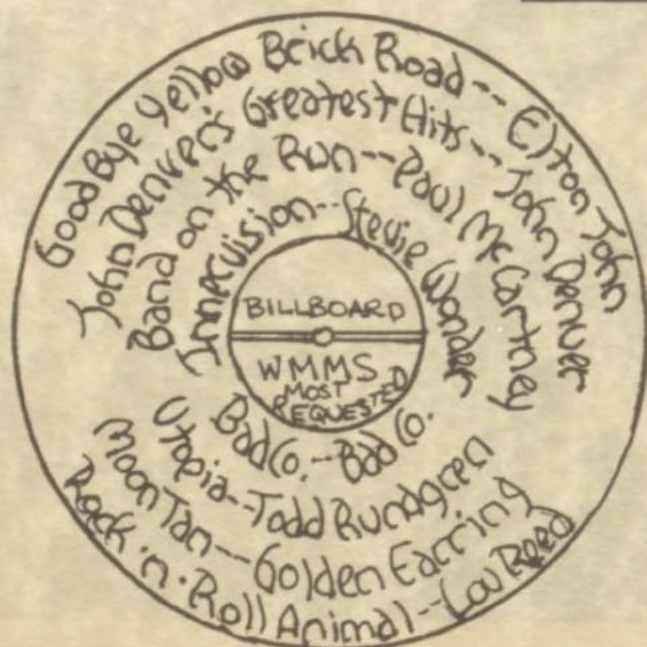 Good Bye Yellow Brick Road -- Elton John
John Denver's Greatest Hits -- John Denver
Band on the Run -- Paul McCartney
Innervision -- Stevie Wonder
BILLBOARD
WMMS
MOST
REQUESTED
Bad Co. -- Bad Co.
Utopia -- Todd Rundgren
Moon Tan -- Golden Earring
Rock 'n' Roll Animal -- Lou Reed